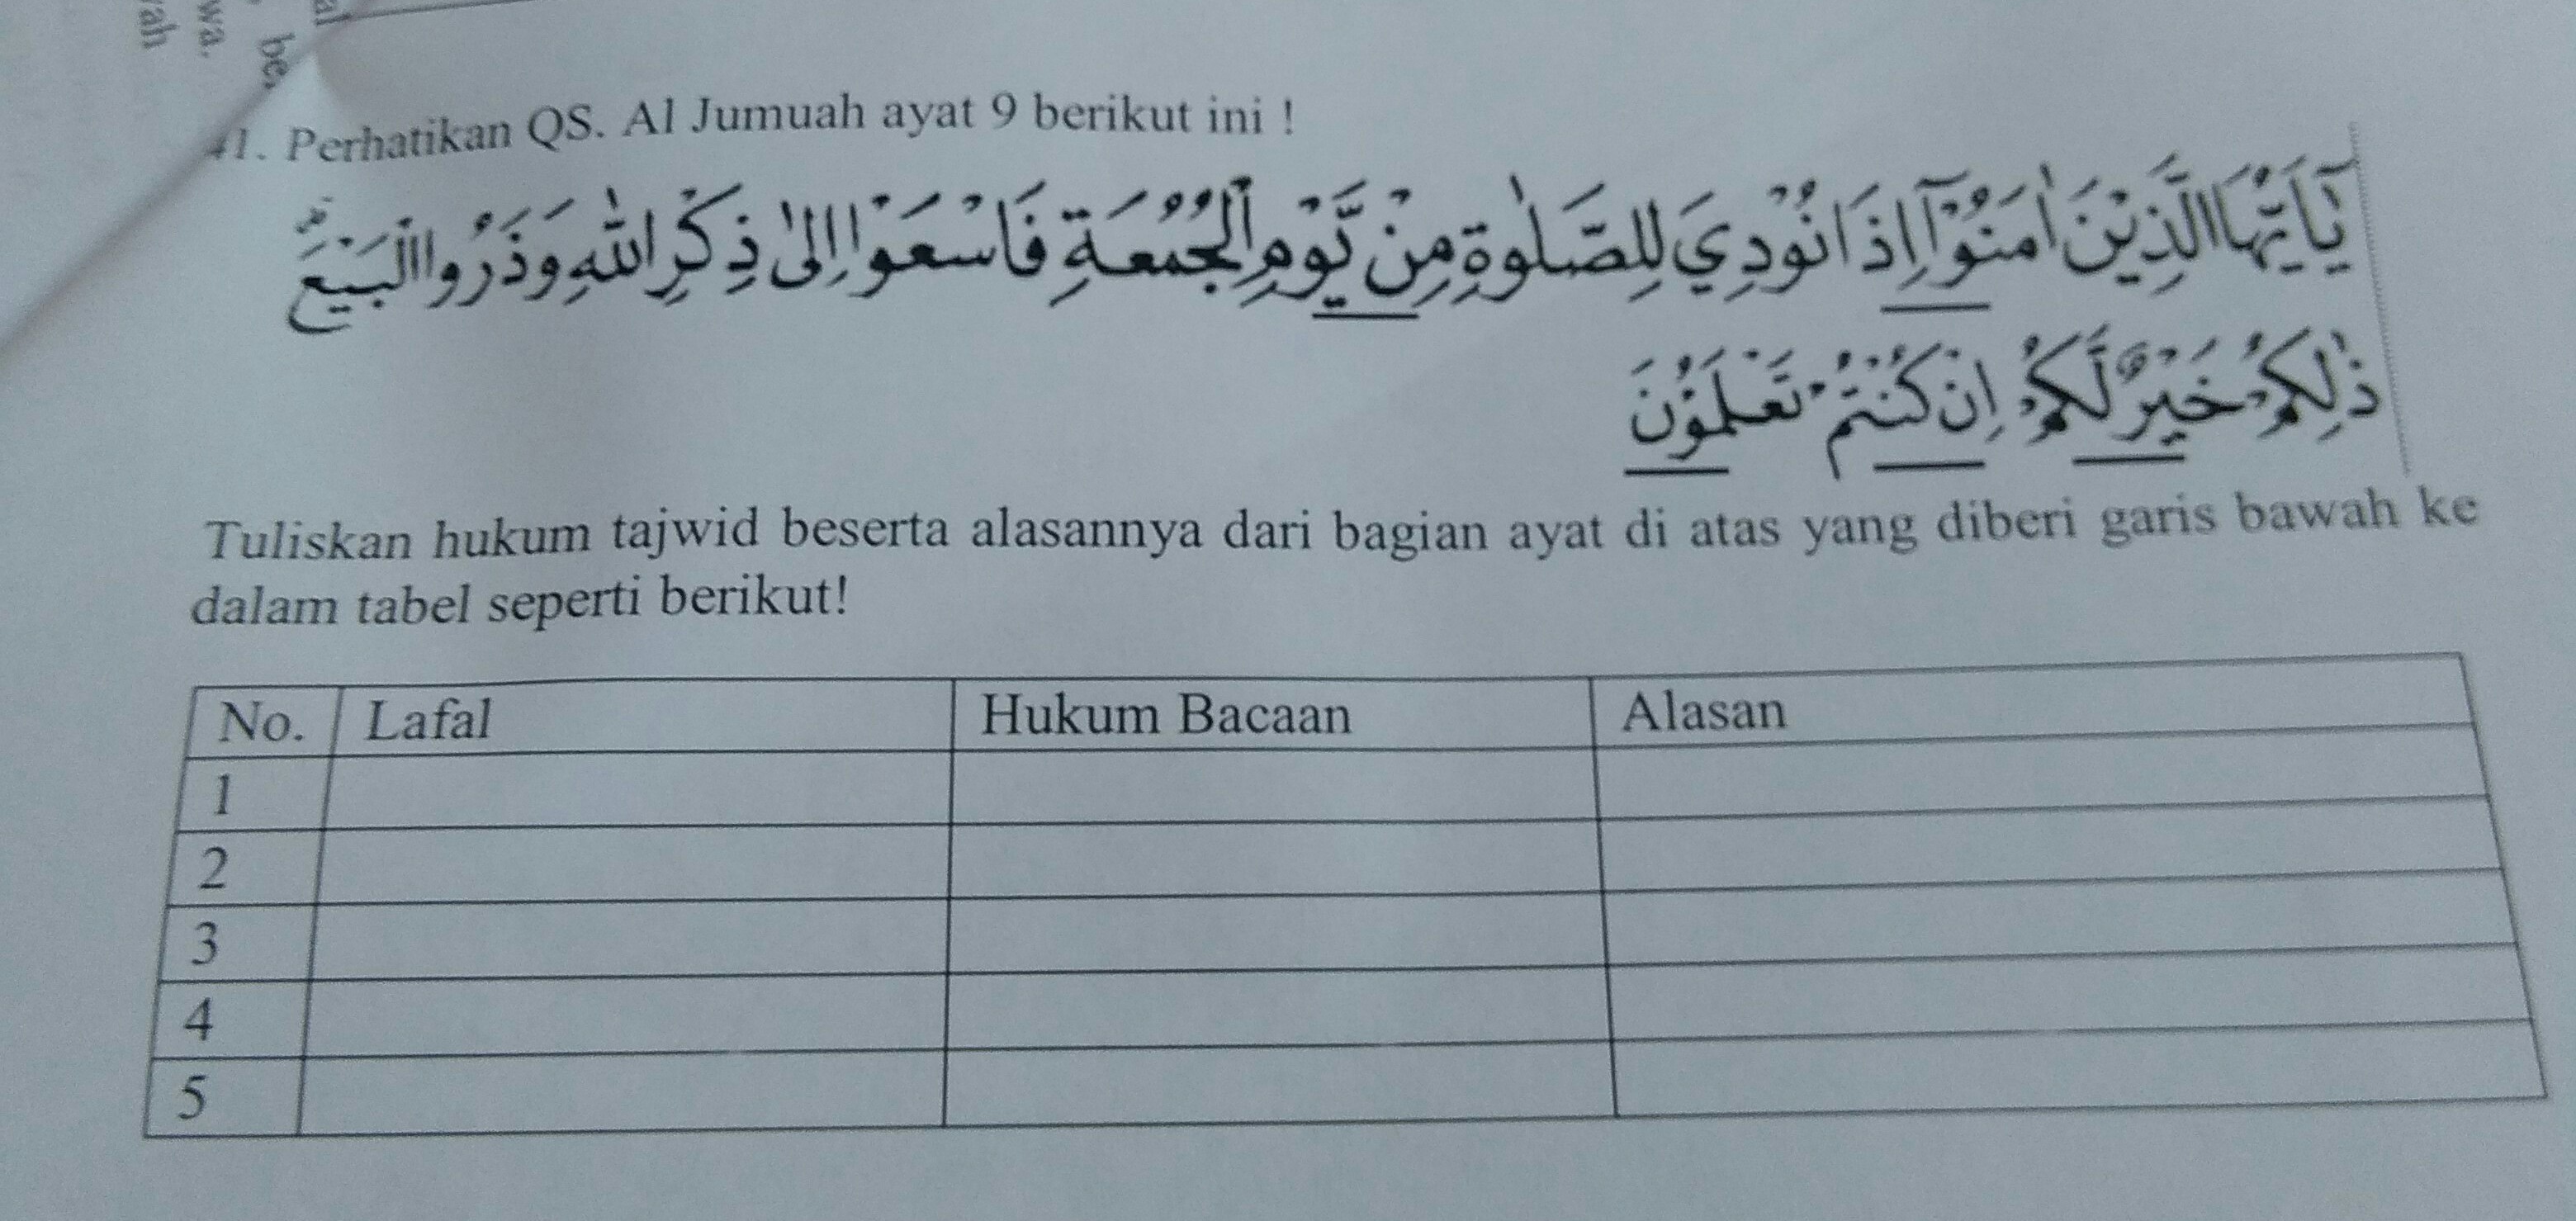 al
be
wa.
ah
41. Perhatikan QS. Al Jumuah ayat 9 berikut ini !
يٰٓاَيُّهَا الَّذِيْنَ اٰمَنُوْٓا اِذَا نُوْدِيَ لِلصَّلٰوةِ مِنْ يَّوْمِ الْجُمُعَةِ فَاسْعَوْا اِلٰى ذِكْرِ اللّٰهِ وَذَرُوا الْبَيْعَۗ
ذٰلِكُمْ خَيْرٌ لَّكُمْ اِنْ كُنْتُمْ تَعْلَمُوْنَ
Tuliskan hukum tajwid beserta alasannya dari bagian ayat di atas yang diberi garis bawah ke
dalam tabel seperti berikut!
No. Lafal Hukum Bacaan Alasan
1
2
3
4
5